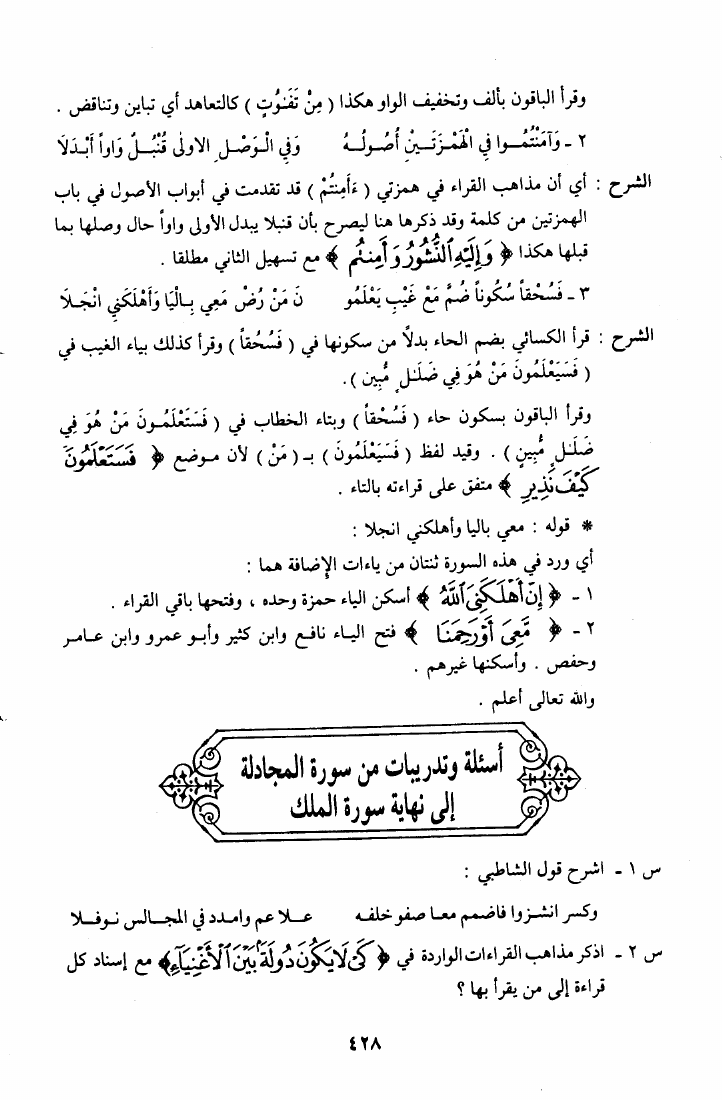 وقرأ الباقون بألف وتخفيف الواو هكذا ( مِنْ تَفَـٰوُتٍ ) كالتعاهد أي تباين وتناقض .
٢ - وَآمَنْتُمُـــوا فِي الْهَمْـزَتَـــيْنِ أُصُـولُــهُ وَفِي الْـوَصْـلِ الاولَى قُنْبُــلٌ وَاواً أَبْـدَلَا
الشرح : أي أن مذاهب القراء في همزتي ( ءَأَمِنتُمْ ) قد تقدمت في أبواب الأصول في باب
الهمزتين من كلمة وقد ذكرها هنا ليصرح بأن قنبلا يبدل الأولى واواً حال وصلها بما
قبلها هكذا ﴿ وَإِلَيْهِ ٱلنُّشُورُ وَأَمِنتُم ﴾ مع تسهيل الثاني مطلقا .
٣ - فَسُحْقاً سُكُوناً ضُمَّ مَعْ غَيْبِ يَعْلَمُو نَ مَنْ رُضْ مَعِي بِـالْيَا وَأَهْلَكَنِي انْجَـلَا
الشرح : قرأ الكسائي بضم الحاء بدلًا من سكونها في ( فَسُحُقاً ) وقرأ كذلك بياء الغيب في
( فَسَيَعْلَمُونَ مَنْ هُوَ فِي ضَلَـٰلٍ مُّبِين ) .
وقرأ الباقون بسكون حاء ( فَسُحْقاً ) وبتاء الخطاب في ( فَسَتَعْلَمُـونَ مَنْ هُوَ فِي
ضَلَـٰلٍ مُّبِينٍ ) . وقيد لفظ ( فَسَيَعْلَمُونَ ) بـ ( مَنْ ) لأن مـوضع ﴿ فَسَتَعْلَمُونَ
كَيْفَ نَذِيرِ ﴾ متفق على قراءته بالتاء .
* قوله : معي باليا وأهلكني انجلا :
أي ورد في هذه السورة ثنتان من ياءات الإضافة هما :
١ - ﴿ إِنْ أَهْلَكَنِىَ ٱللَّهُ ﴾ أسكن الياء حمزة وحده ، وفتحها باقي القراء .
٢ - ﴿ مَّعِىَ أَوْ رَحِمَنَا ﴾ فتح اليـاء نافـع وابن كثير وأبـو عمرو وابن عـامـر
وحفص . وأسكنها غيرهم .
والله تعالى أعلم .
أسئلة وتدريبات من سورة المجادلة
إلى نهاية سورة الملك
س ١ - اشرح قول الشاطبي :
وكسر انشـزوا فاضمم معـا صفو خلفـه عـــلا عم وامـدد في المجـالس نـوفــلا
س ٢ - اذكر مذاهب القراءات الواردة في ﴿ كَىْ لَا يَكُونَ دُولَةًۢ بَيْنَ ٱلْأَغْنِيَآءِ ﴾ مع إسناد كل
قراءة إلى من يقرأ بها ؟
٤٢٨